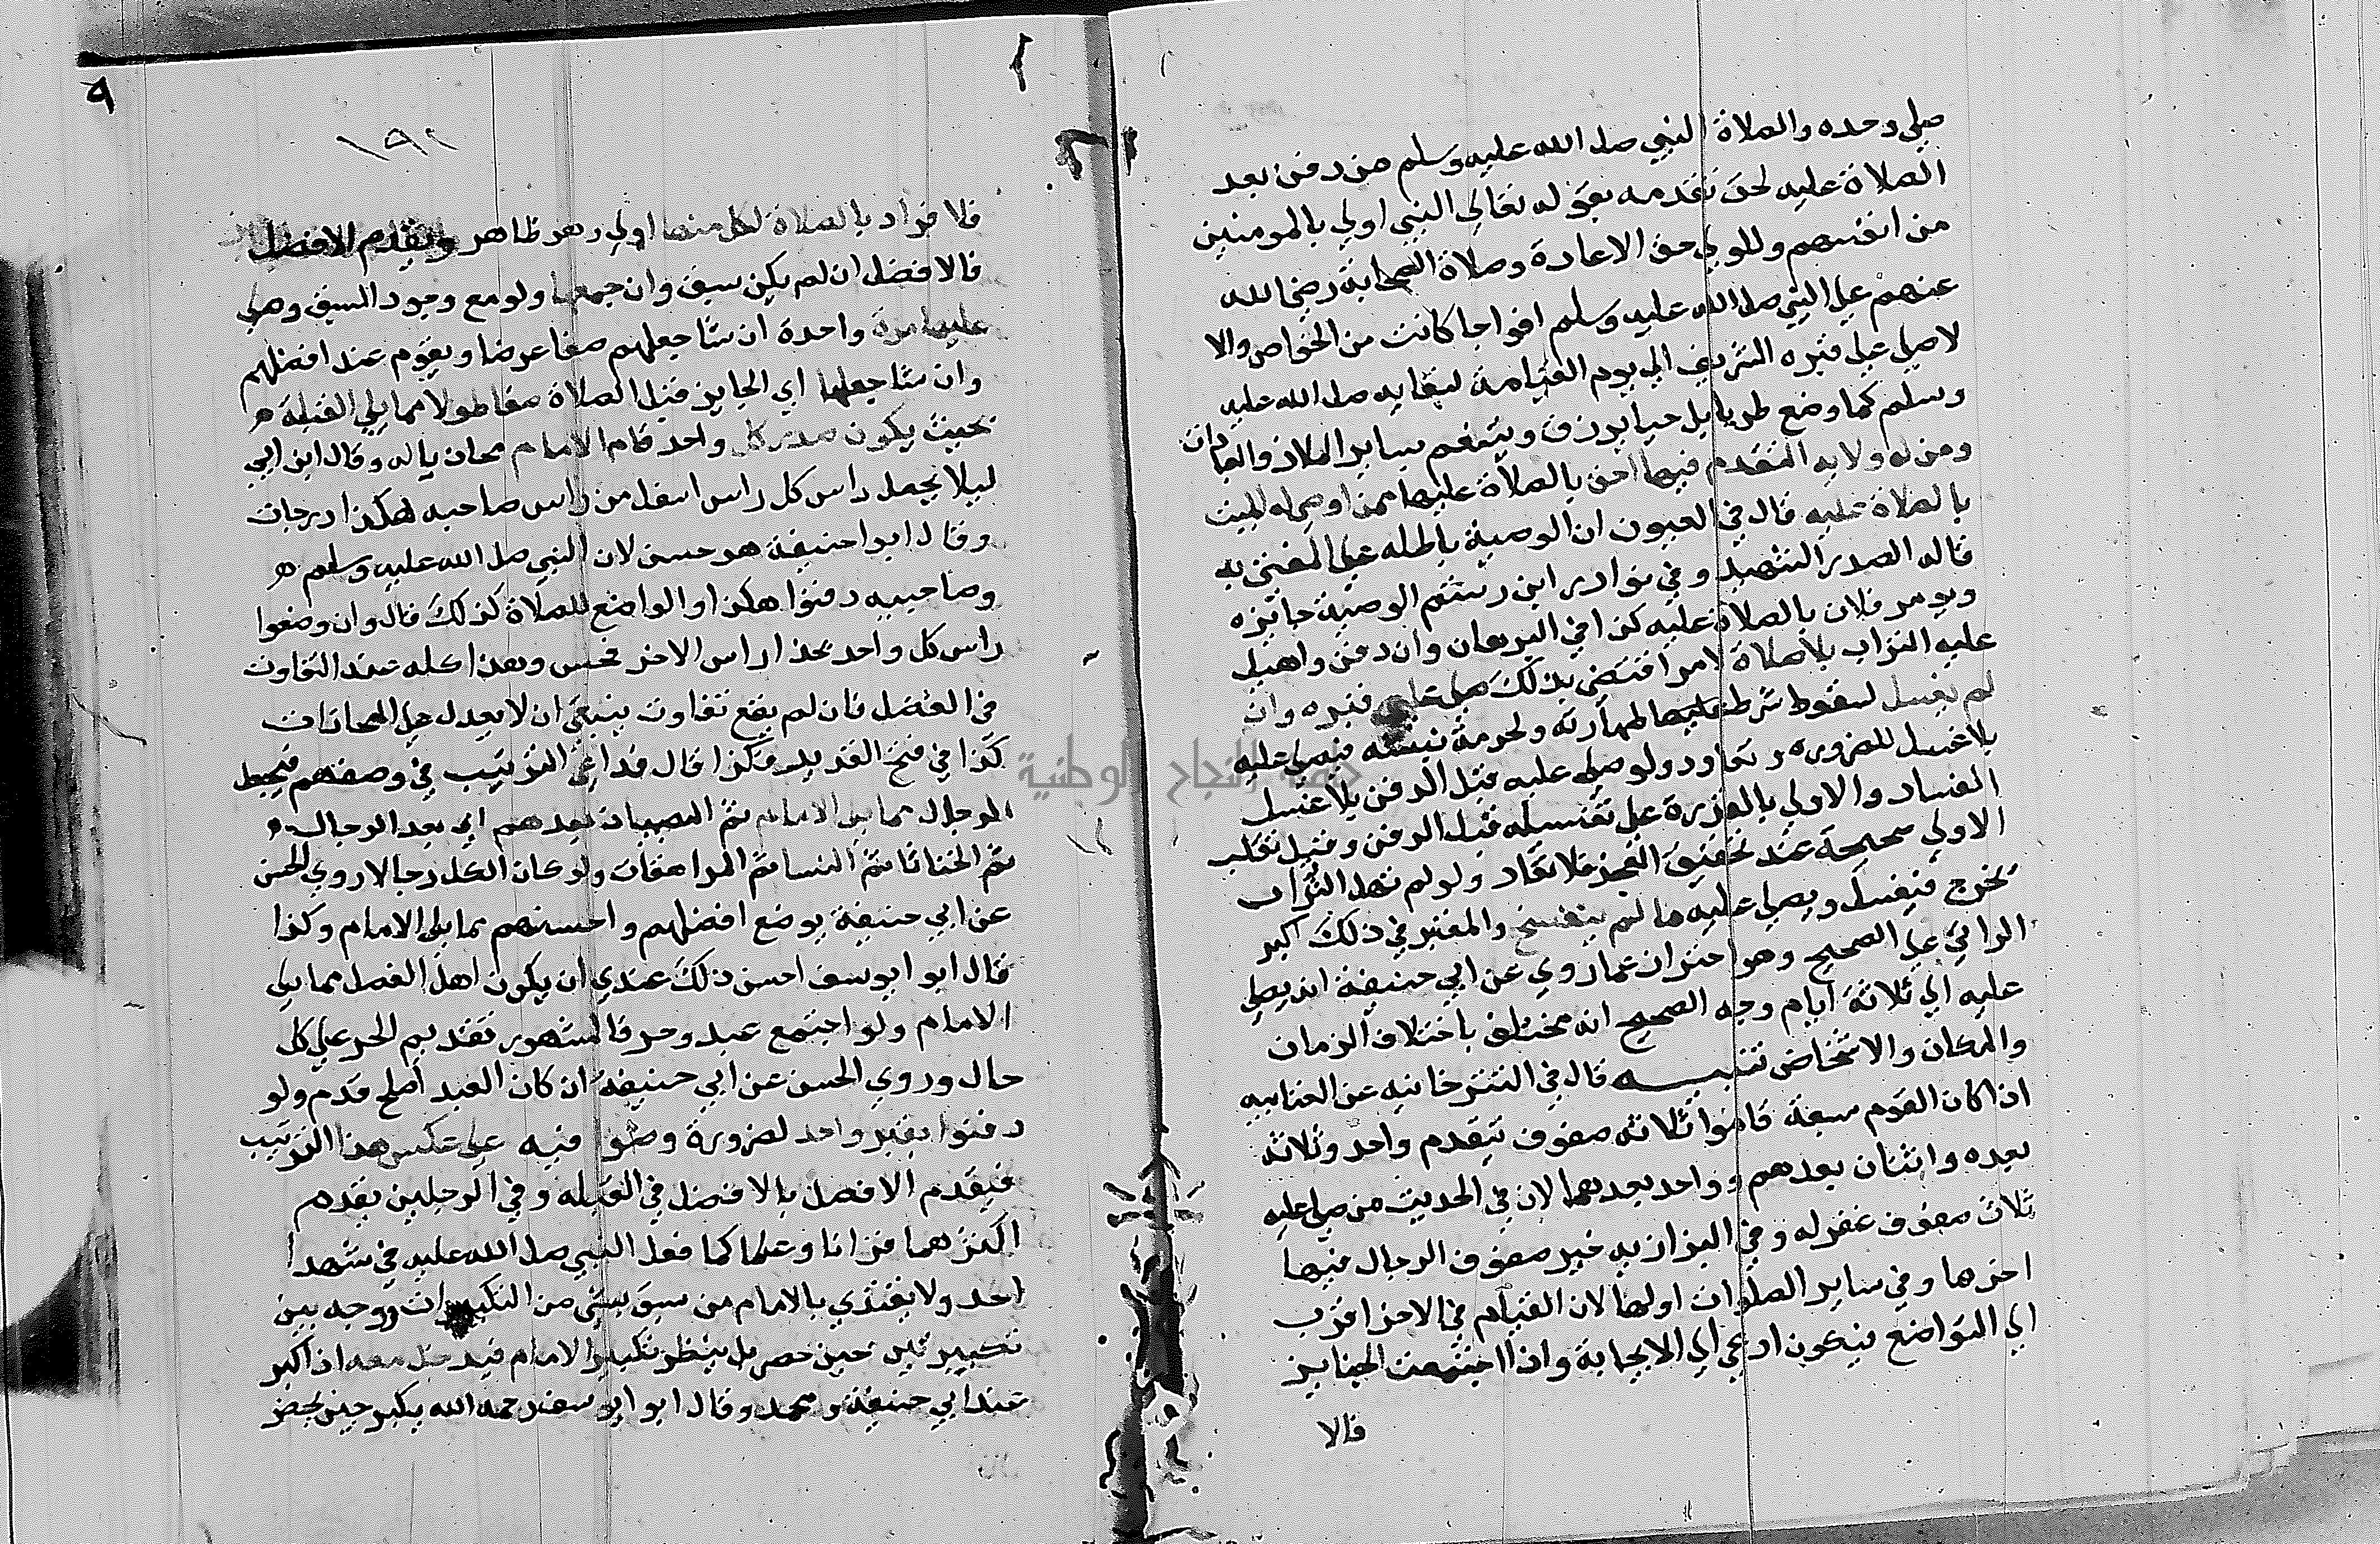 صلي وحده والصلاة النبي صلي الله عليه وسلم من دفن بعد
الصلاة عليه لحق تقدمه بقوله تعالي النبي اولي بالمومنين
من انفسهم وللولي حق الاعادة وصلاة الصحابة رضي الله
عنهم علي النبي صلي الله عليه وسلم افواجا كانت من الخواص والا
لاصلي علي قبره الشريف الي يوم القيامة لبقايه صلي الله عليه
وسلم كما وضع طريا بل حيا يرزق ويتنعم بساير الملاذ والعبادات
ومن له ولاية التقدم فيها احق بالصلاة عليها ممن اوصي له الميت
بالصلاة عليه قال في العيون ان الوصية باطله علي المفتي به
قاله الصدر الشهيد وفي نوادر ابن رستم الوصية جايزه
ويومر فلان بالصلاة عليه كذا في البرهان وان دفن واهيل
عليه التراب بلا صلاة لامر اقتضي بذلك صلي علي قبره وان
لم يغسل لسقوط شرط طهارته ولحرمة نبشه فيصلي عليه
بلا غسل للضروره وتعاد ولو صلي عليه قبل الدفن بلا غسل
الفساد والاولي بالقدرة علي تغسيله قبل الدفن وقيل تقلب
الاولي صحيحة عند تحقيق العجز فلا تعاد ولو لم يهل التراب
يخرج فيغسل ويصلي عليه ما لم يتفسخ والمعتبر في ذلك اكبر
الراي علي الصحيح وهو احتراز عما روي عن ابي حنيفة انه يصلي
عليه الي ثلاثة ايام وجه الصحيح انه مختلف باختلاف الزمان
والمكان والاشخاص تنبيه قال في التترخانيه عن العتابيه
اذا كان القوم سبعة قاموا ثلاثة صفوف يتقدم واحد وثلاثة
بعده واثنان بعدهم وواحد بعدهما لان في الحديث من صلي عليه
ثلاث صفوف غفر له وفي البزازيه خير صفوف الرجال فيها
اخرها وفي ساير الصلوات اولها لان القيام في الاخر اقرب
الي التواضع فيكون ادعي الي الاجابة واذا اجتمعت الجنايز
فالا
٩
١٩٢
فلافراد بالصلاة لكل منها اولي وهو ظاهر ويقدم الافضل
فالافضل ان لم يكن سبق وان جمعها ولو مع وجود السبق وصلي
عليها مرة واحدة ان شا جعلهم صفا عرضا ويقوم عند افضلهم
وان شا جعلها اي الجنايز قبل الصلاة صفا طولا مما يلي القبلة
بحيث يكون صدر كل واحد قدام الامام محاذيا له وقال ابن ابي
ليلا يجعل راس كل راس اسفل من راس صاحبه هكذا درجات
وقال ابو احنيفة هو حسن لان النبي صلي الله عليه وسلم
وصاحبيه دفنوا هكذا والواضع للصلاة كذلك قال وان وضعوا
راس كل واحد بحذا راس الاخر فحسن وهذا كله عند التفاوت
في الفضل فان لم يقع تفاوت ينبغي ان لا يعدل عن المحاذات
كذا في فتح القدير فكذا قال وراعي الترتيب في وصفهم فيجعل
الرجال مما يلي الامام ثم الصبيان بعدهم اي بعد الرجال
ثم الخناثا ثم النسا ثم المراهقات ولو كان الكل رجالا روي الحسن
عن ابي حنيفة يوضع افضلهم واحسنهم مما يلي الامام وكذا
قال ابو ايوسف احسن ذلك عندي ان يكون اهل الفضل مما يلي
الامام ولو اجتمع عبد وحر فالمشهور تقديم الحر علي كل
حال وروي الحسن عن ابي حنيفة ان كان العبد اصلح قدم ولو
دفنوا بقبر واحد لضرورة وضعوا فيه علي عكس هذا الترتيب
فيقدم الافضل بالافضل في القبله وفي الرجلين يقدم
اكثرهما قرانا وعلما كما فعل النبي صلي الله عليه في شهدا
احد ولا يقتدي بالامام من سبق بشي من التكبيرات ووجه بين
تكبيرتين حين حضر بل ينتظر تكبير الامام فيدخل معه اذا كبر
عند ابي حنيفة ومحمد وقال ابو ايوسف رحمه الله يكبر حين يحضر
جامعة النجاح الوطنية